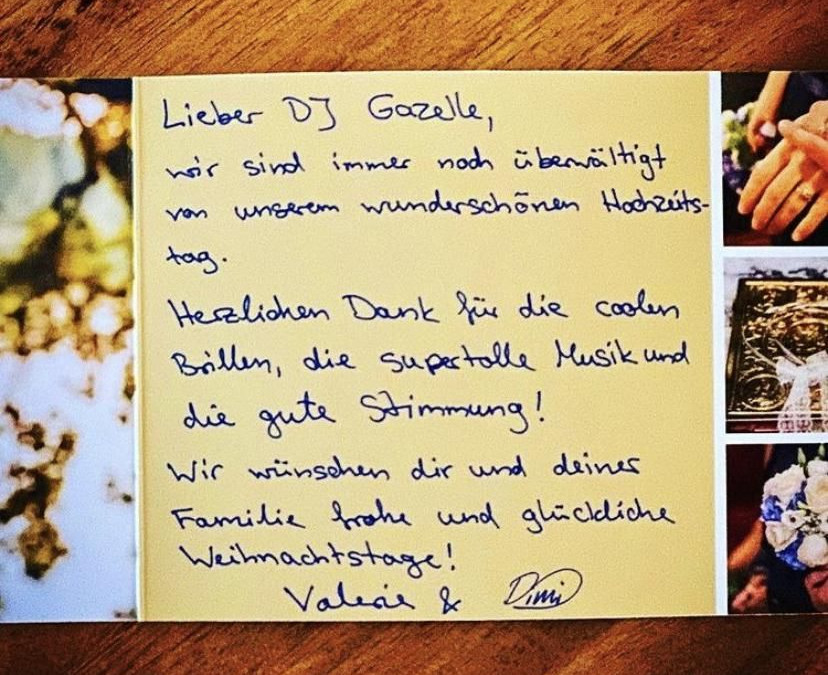 Lieber DJ Gazelle,
wir sind immer noch überwältigt
von unserem wunderschönen Hochzeits-
tag.
Herzlichen Dank für die coolen
Brillen, die supertolle Musik und
die gute Stimmung!
Wir wünschen dir und deiner
Familie frohe und glückliche
Weihnachtstage!
Valerie & Dimi